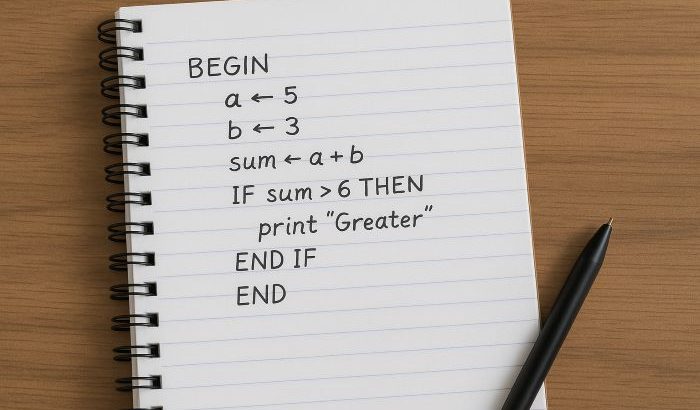 BEGIN
a ← 5
b ← 3
sum ← a + b
IF sum > 6 THEN
print "Greater"
END IF
END